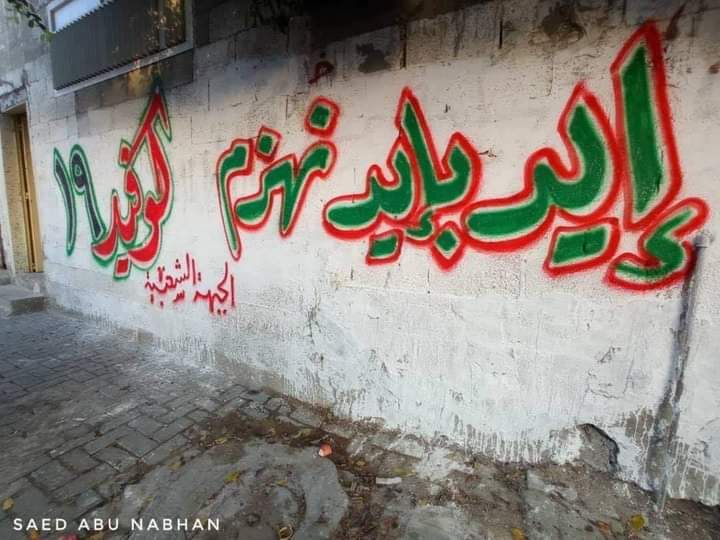 إيد بإيد نهزم كوفيد ١٩
الجبهة الشعبية
SAED ABU NABHAN